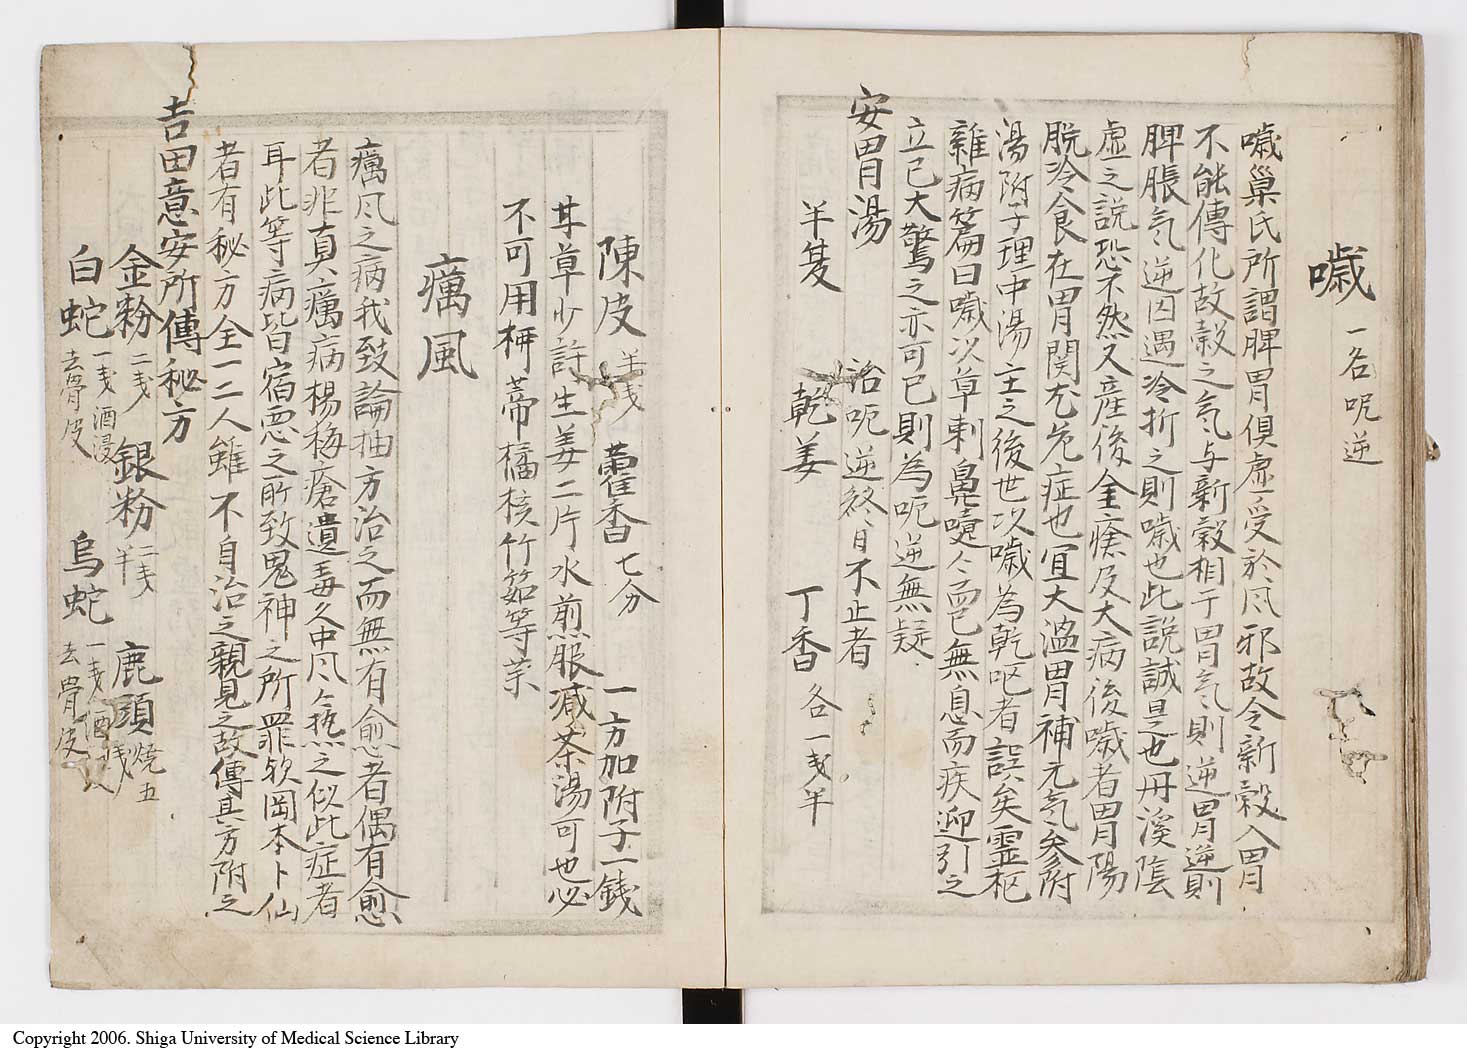 噦 一名呃逆
噦巢氏所謂脾胃俱虛受於风邪故令新穀入胃
不能傳化故穀之气与新穀相于胃气則逆胃逆則
脾脹气逆因遇冷折之則噦也此説誠是也丹溪陰
虛之説恐不然又産後金瘡及大病後噦者胃陽
脱冷食在胃関尤危症也宜大溫胃補元气参附
湯附子理中湯主之後世以噦為乾呕者誤矣霊枢
雜病篇曰噦以草刺鼻嚏〻而已無息而疾迎引之
立已大驚之亦可已則為呃逆無疑
安胃湯 治呃逆終日不止者
半夏 乾姜 丁香 各一戋半
陳皮 半戋 藿香 七分 一方加附子一銭
甘草少許生姜二片水煎服减茶湯可也必
不可用柿蒂橘核竹筎等茉
癘風
癘风之病我致論抽方治之而無有愈者偶有愈
者非真癘病楊梅瘡遺毒久中风气热之似此症者
耳此等病皆宿悪之所致鬼神之所罪欤岡本卜仙
者有秘方全一二人雖不自治之親見之故傳其方附之
吉田意安所傳秘方
金粉 二戋 銀粉 二戋半 鹿頭 焼五戋
白蛇 一戋酒浸去骨皮 烏蛇 一戋酒去骨皮